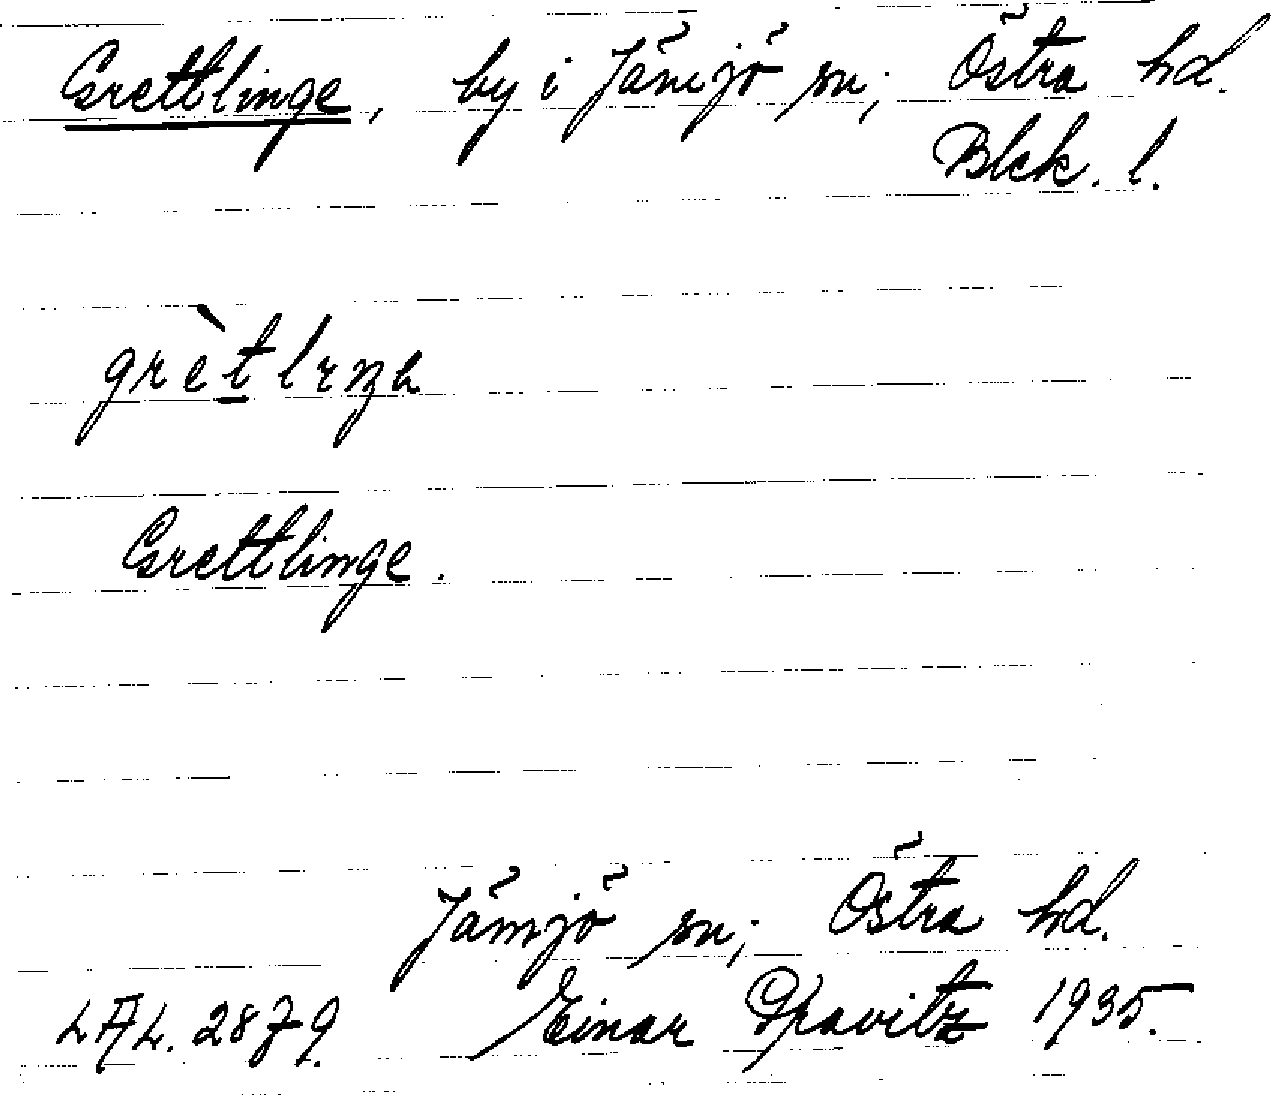 Grettlinge, by i Jämjö sn; Östra hd.
Blek. l.
grètlɪŋə
Grettlinge.
Jämjö sn; Östra hd.
LAL. 2879. Einar 1935.